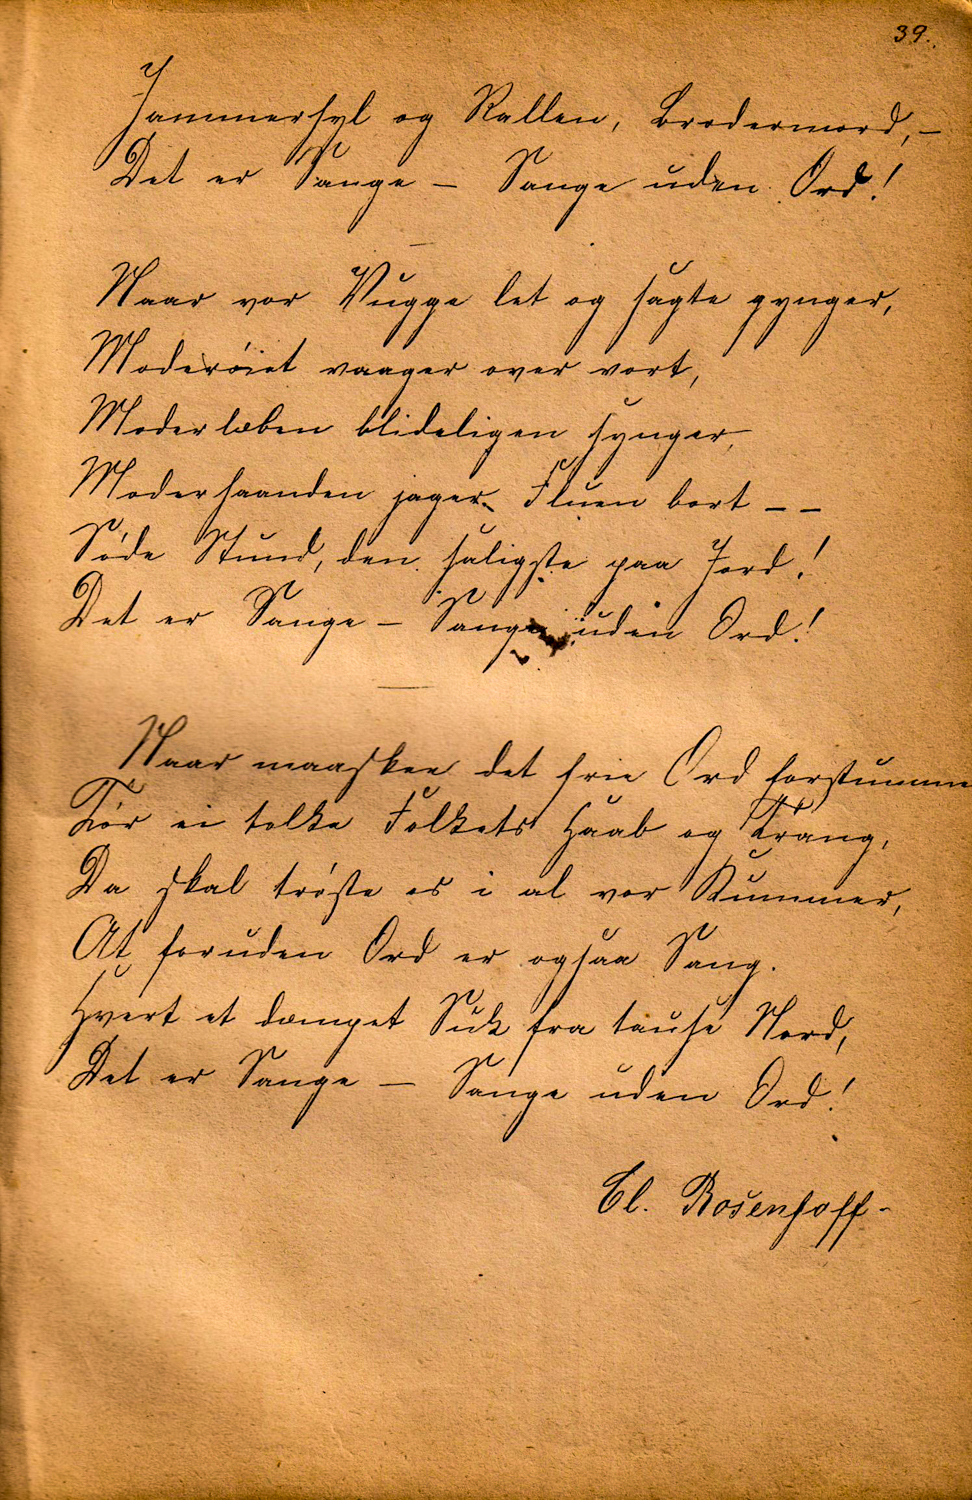 39.
Jammerhyl og Rallen, Brodermord, —
Det er Sange — Sange uden Ord!
Naar vor Vugge let og sagte gynger,
Moderøiet vaager over vort,
Moderlæben blideligen synger,
Moderhaanden jager Fluen bort — —
Søde Stund, den saligste paa Jord!
Det er Sange — Sange uden Ord!
Naar maaskee det frie Ord forstumme
Tør ei tolke Folkets Haab og Trang,
Da skal trøste os i al vor Kummer,
At foruden Ord er ogsaa Sang.
Hvert et dæmpet Suk fra tause Nord,
Det er Sange — Sange uden Ord!
Cl. Rosenhoff -